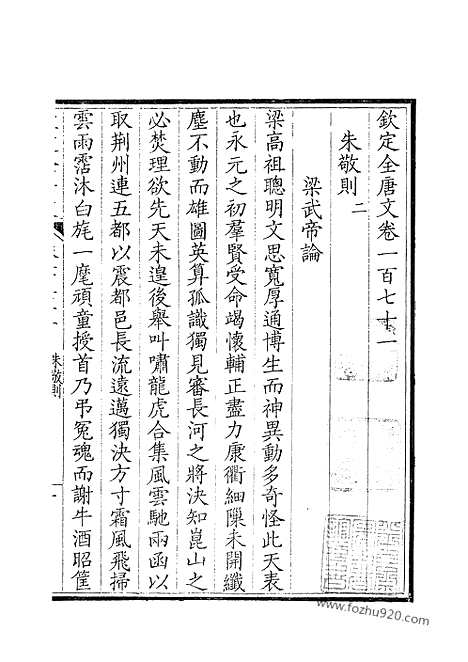 欽定全唐文卷一百七十一
朱敬則二
梁武帝論
梁高祖聰明文思寬厚通博生而神異動多奇怪此天表
也永元之初羣賢受命竭懷輔正盡力康衢細隟未開纖
塵不動而雄圖英算孤識獨見審長河之將決知崑山之
必焚理欲先天未遑後舉叫嘯龍虎合集風雲馳兩函以
取荆州連五都以震都邑長流遠邁獨決方寸霜風飛掃
雲雨霑沐白旄一麾頑童授首乃弔冤魂而謝牛酒昭筐
朱敬則
www.fozhu920.com